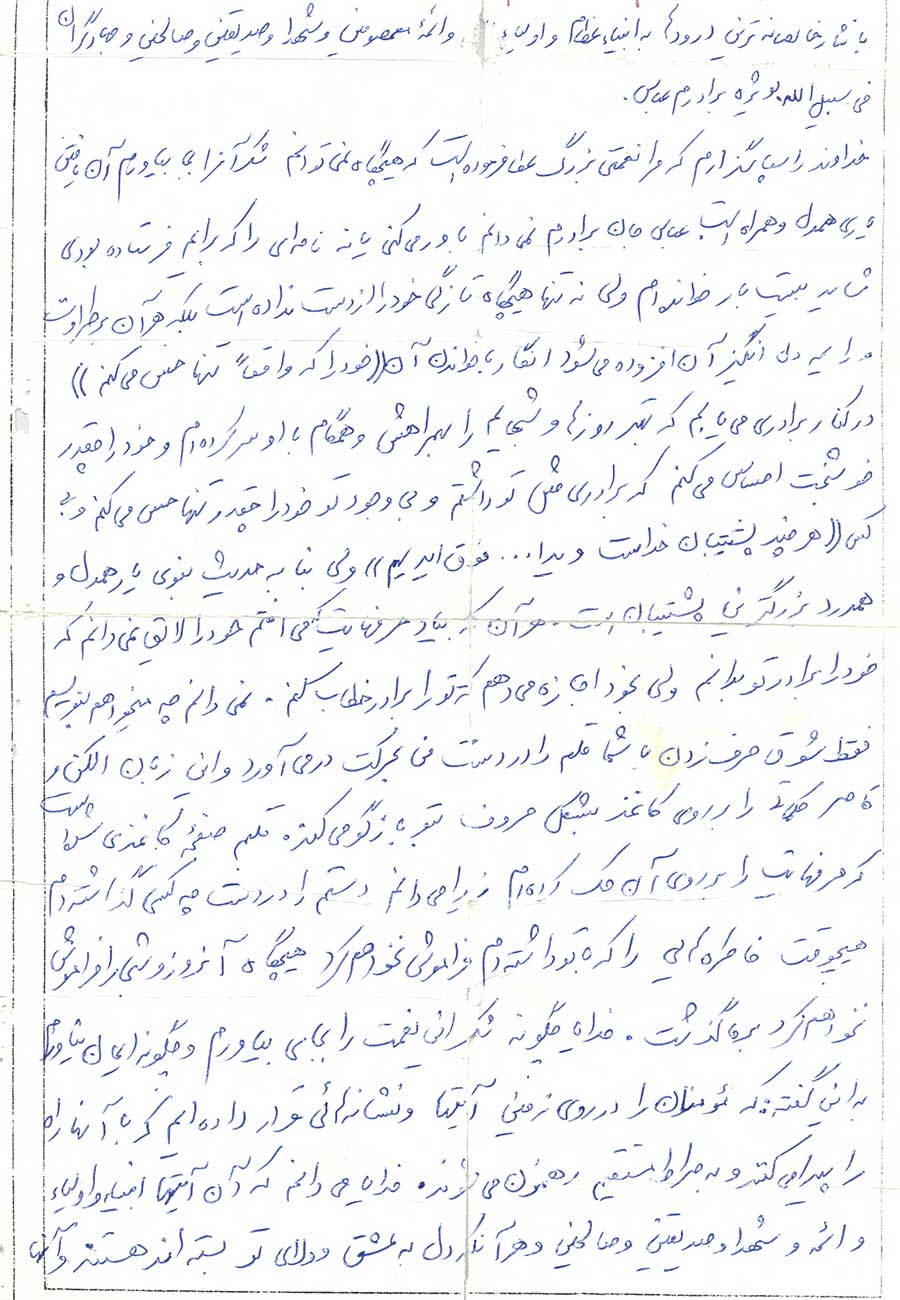 با نثار خالصانه ترین درودها به انبیاء عظام و اولیاء و ائمهٔ معصومین و شهدا و صدیقین و صالحین و جهادگران
فی سبیل الله بویژه برادرم عباس.
خداوند را سپاسگزارم که مرا نعمتی بزرگ عطا فرموده است که هیچگاه نمی توانم شکر آنرا بجا بیاورم آن یافتن
یاری همدل و همراه است عباس جان برادرم نمی دانم باور می کنی یا نه نامه ای را که برایم فرستاده بودی
شاید بیست بار خوانده ام ولی نه تنها هیچگاه تازگی خود را از دست نداده است بلکه هر آن بر طراوت
و رایحه دل انگیز آن افزوده می شود انگار با خواندن آن ((خود را که واقعاً تنها حس می کنم))
در کنار برادری می یابم که تمام روزها و شبهایم را بهمراهش و همگام با او سر کرده ام و خود را چقدر
خوشبخت احساس می کنم که برادری مثل تو داشتم و بی وجود تو خود را چقدر تنها حس می کنم و بی
کس ((هر چند پشتیبان خداست و یدا... فوق ایدیهم)) ولی بنا به حدیث نبوی یار همدل و
همدرد بزرگترین پشتیبان است. هر آن که بیاد حرفهایت می افتم خود را لایق نمی دانم که
خود را برادر تو بدانم ولی بخود اجازه می دهم که تو را برادر خطاب کنم. نمی دانم چه میخواهم بنویسم
فقط شوق حرف زدن با شما قلم را در دست من بحرکت در می آورد و این زبان الکن و
قاصر کلمات را بر روی کاغذ بشکل حروف بتو بازگو می کند، قلبم صفحهٔ کاغذی شده است
که حرفهایت را بر روی آن حک کرده ام زیرا می دانم دستم را در دست چه کسی گذاشته ام
هیچوقت خاطره هایی را که با تو داشته ام فراموش نخواهم کرد هیچگاه آنروز و شب را فراموش
نخواهم کرد بر ما گذشت. خدایا چگونه شکر این نعمت را بجای بیاورم و چگونه ایمان نیاورم
به این گفته که مؤمنان را در روی زمین آیتها و نشانه هائی قرار داده ایم که با آنها راه
را پیدا می کنند و به صراط مستقیم رهنمون می شوند. خدایا می دانم که آن آیتها انبیاء و اولیاء
و ائمه و شهدا و صدیقین و صالحین و هر آنکه دل به عشق و ولای تو بسته اند هستند و آنها